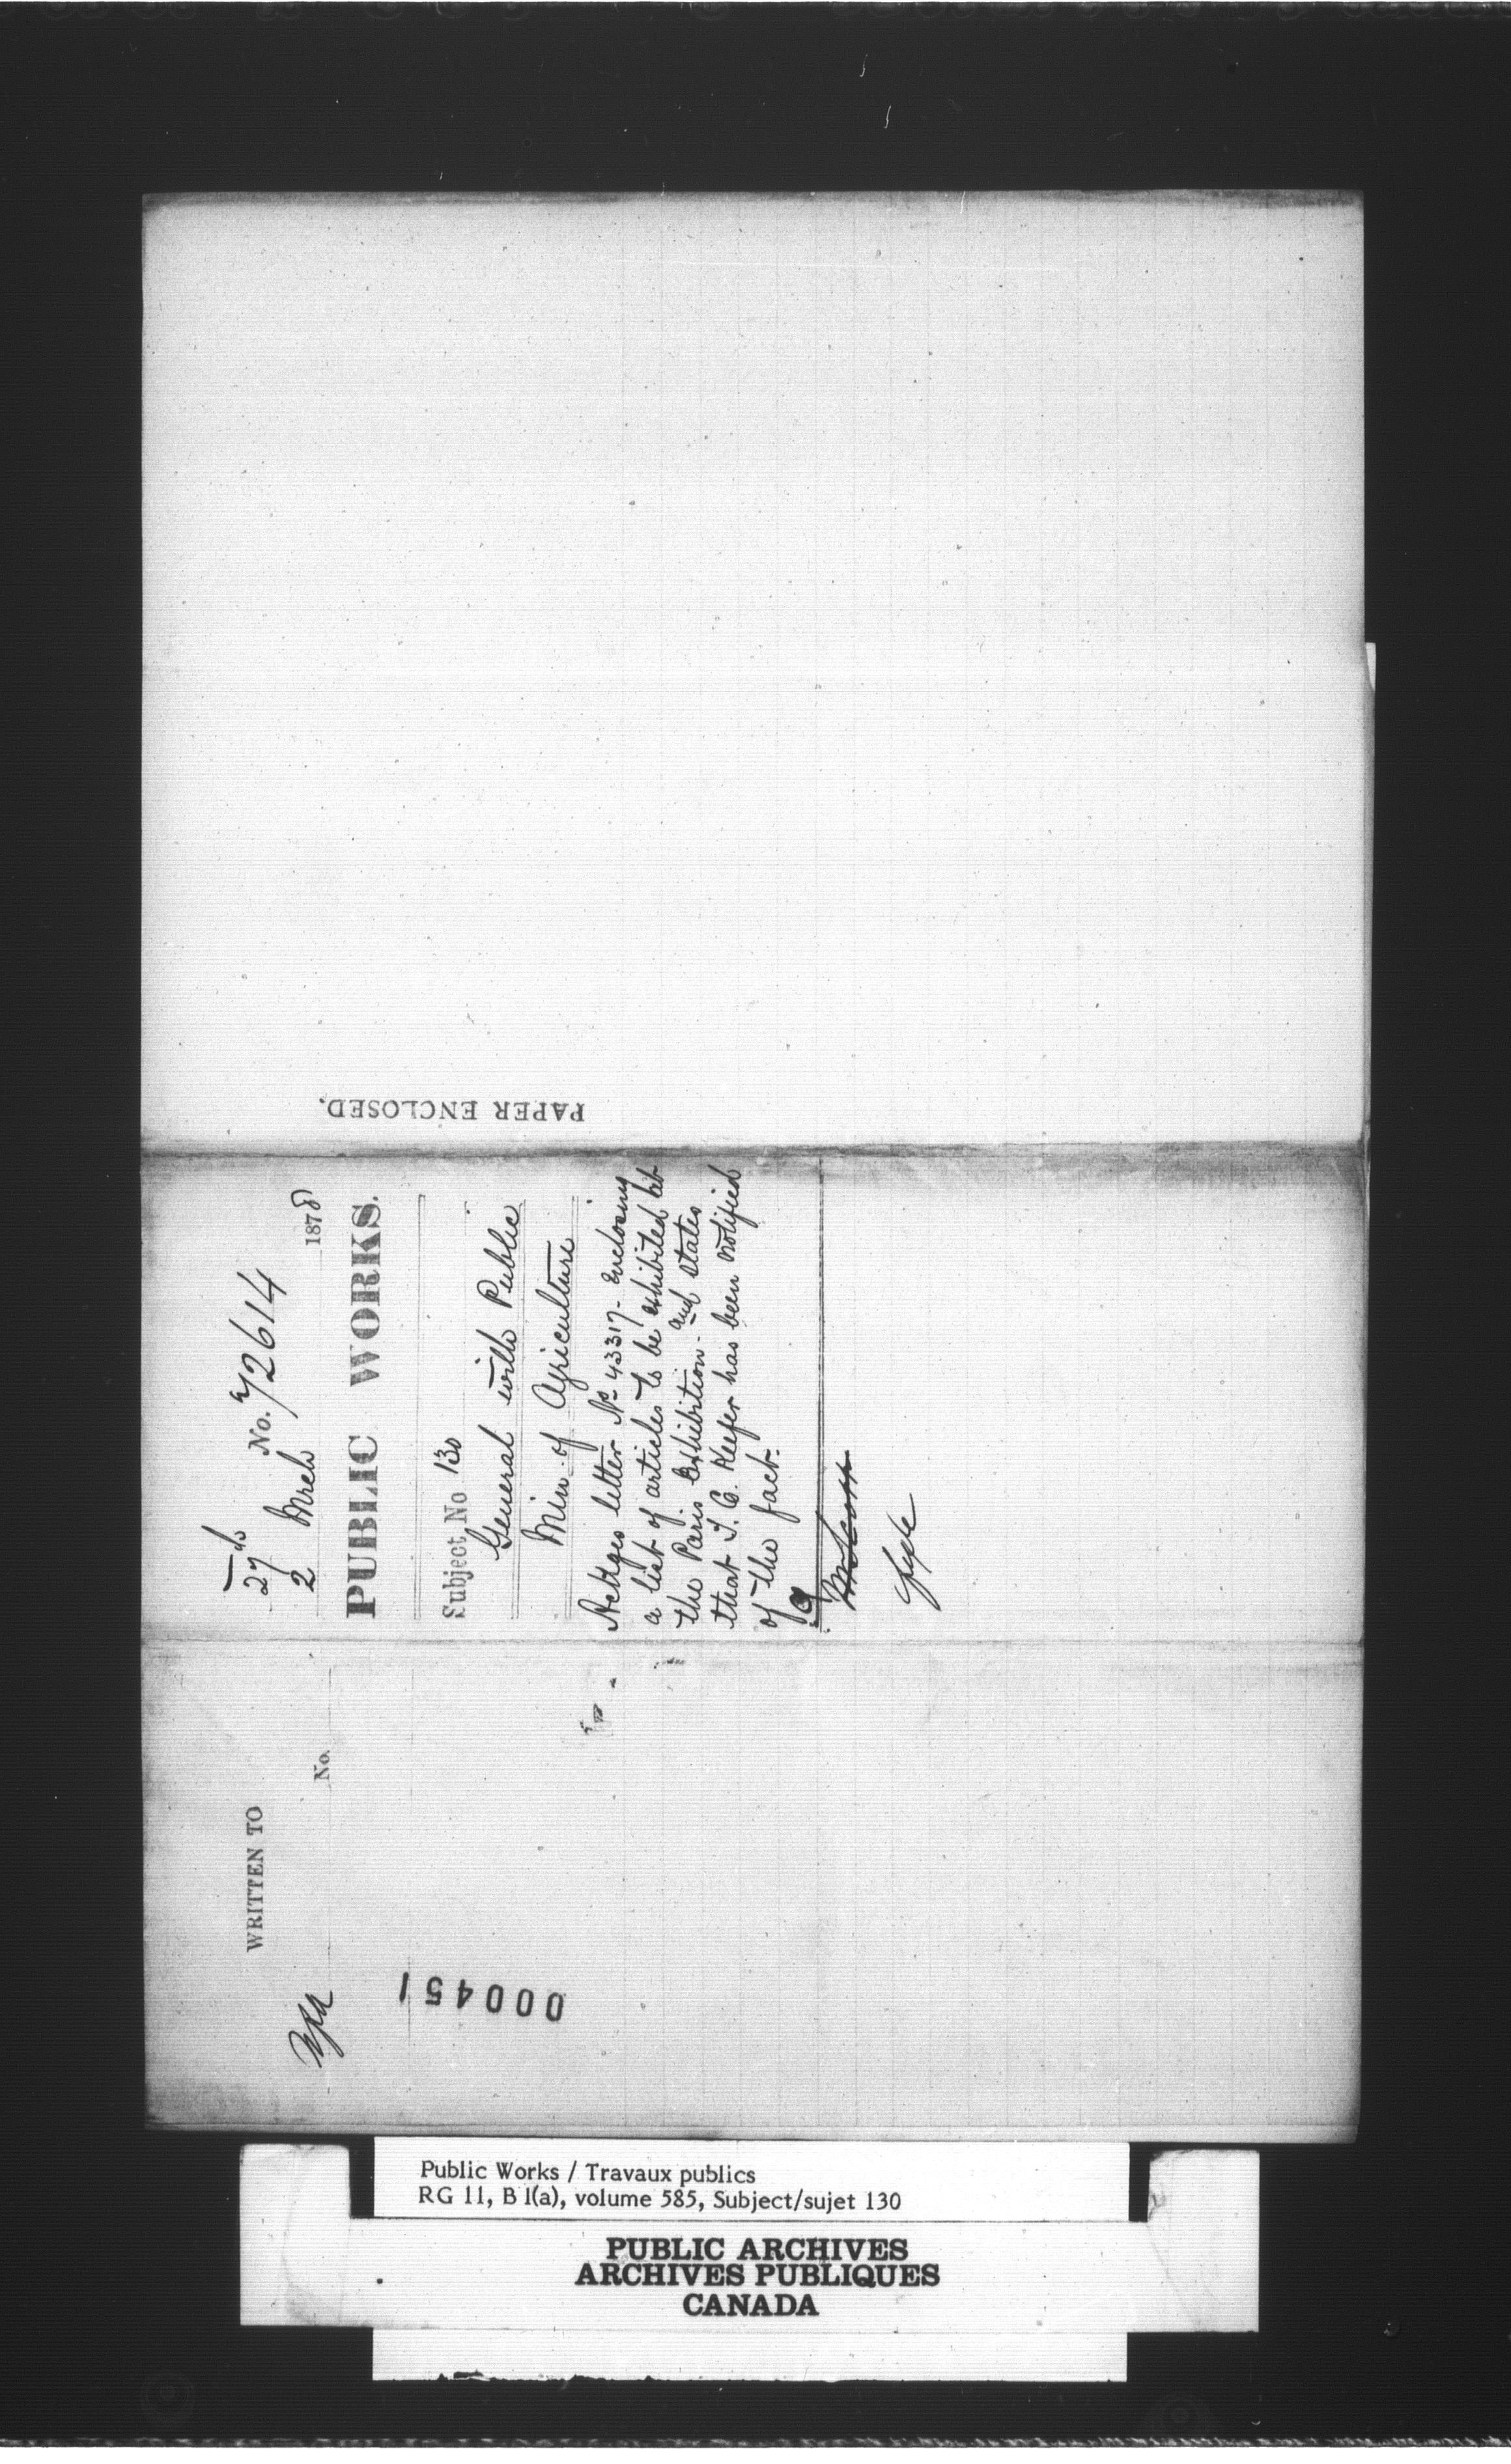 27
No. 72614
2 Mrch 1878
PUBLIC WORKS.
Subject No 130
General with Public
Min. of Agriculture
Ackges letter No 43317 - Enclosing
a list of articles to be exhibited at
the Paris Exhibition - and states
that T. C. Keefer has been notified
of the fact.
fyle
PAPER ENCLOSED.
WRITTEN TO
No.
000451
Public Works / Travaux publics
RG 11, B 1(a), volume 585, Subject/sujet 130
PUBLIC ARCHIVES
ARCHIVES PUBLIQUES
CANADA